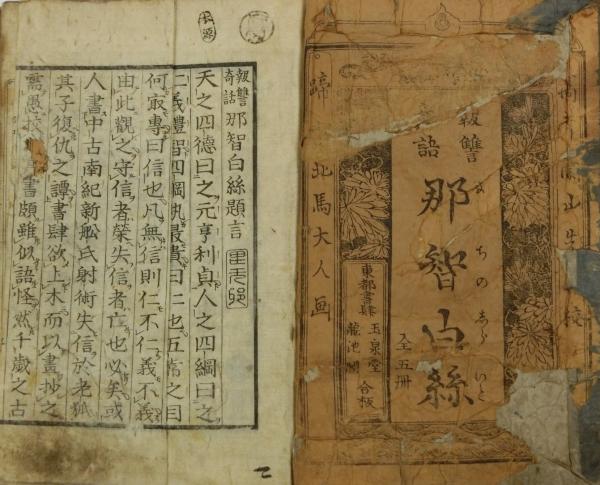 山先
校
報讐
語
那智白絲
なちのしらいと
全五冊
東都書肆 玉泉堂
龍池閣 合板
蹄
北馬大人画
報讐
奇話
那智白絲題言
天之四德曰之元亨利貞人之四綱曰之
仁義禮智四綱孰最貴曰仁也五常之目
何取專曰信也凡無信則仁不仁義不義
由此觀之守信者榮失信者亡也必矣或
人書中古南紀新舩氏射術失信於老狐
其子復仇之譚書肆欲上木而以畫抄之
需愚校書頗雖似語怪然千歲之古